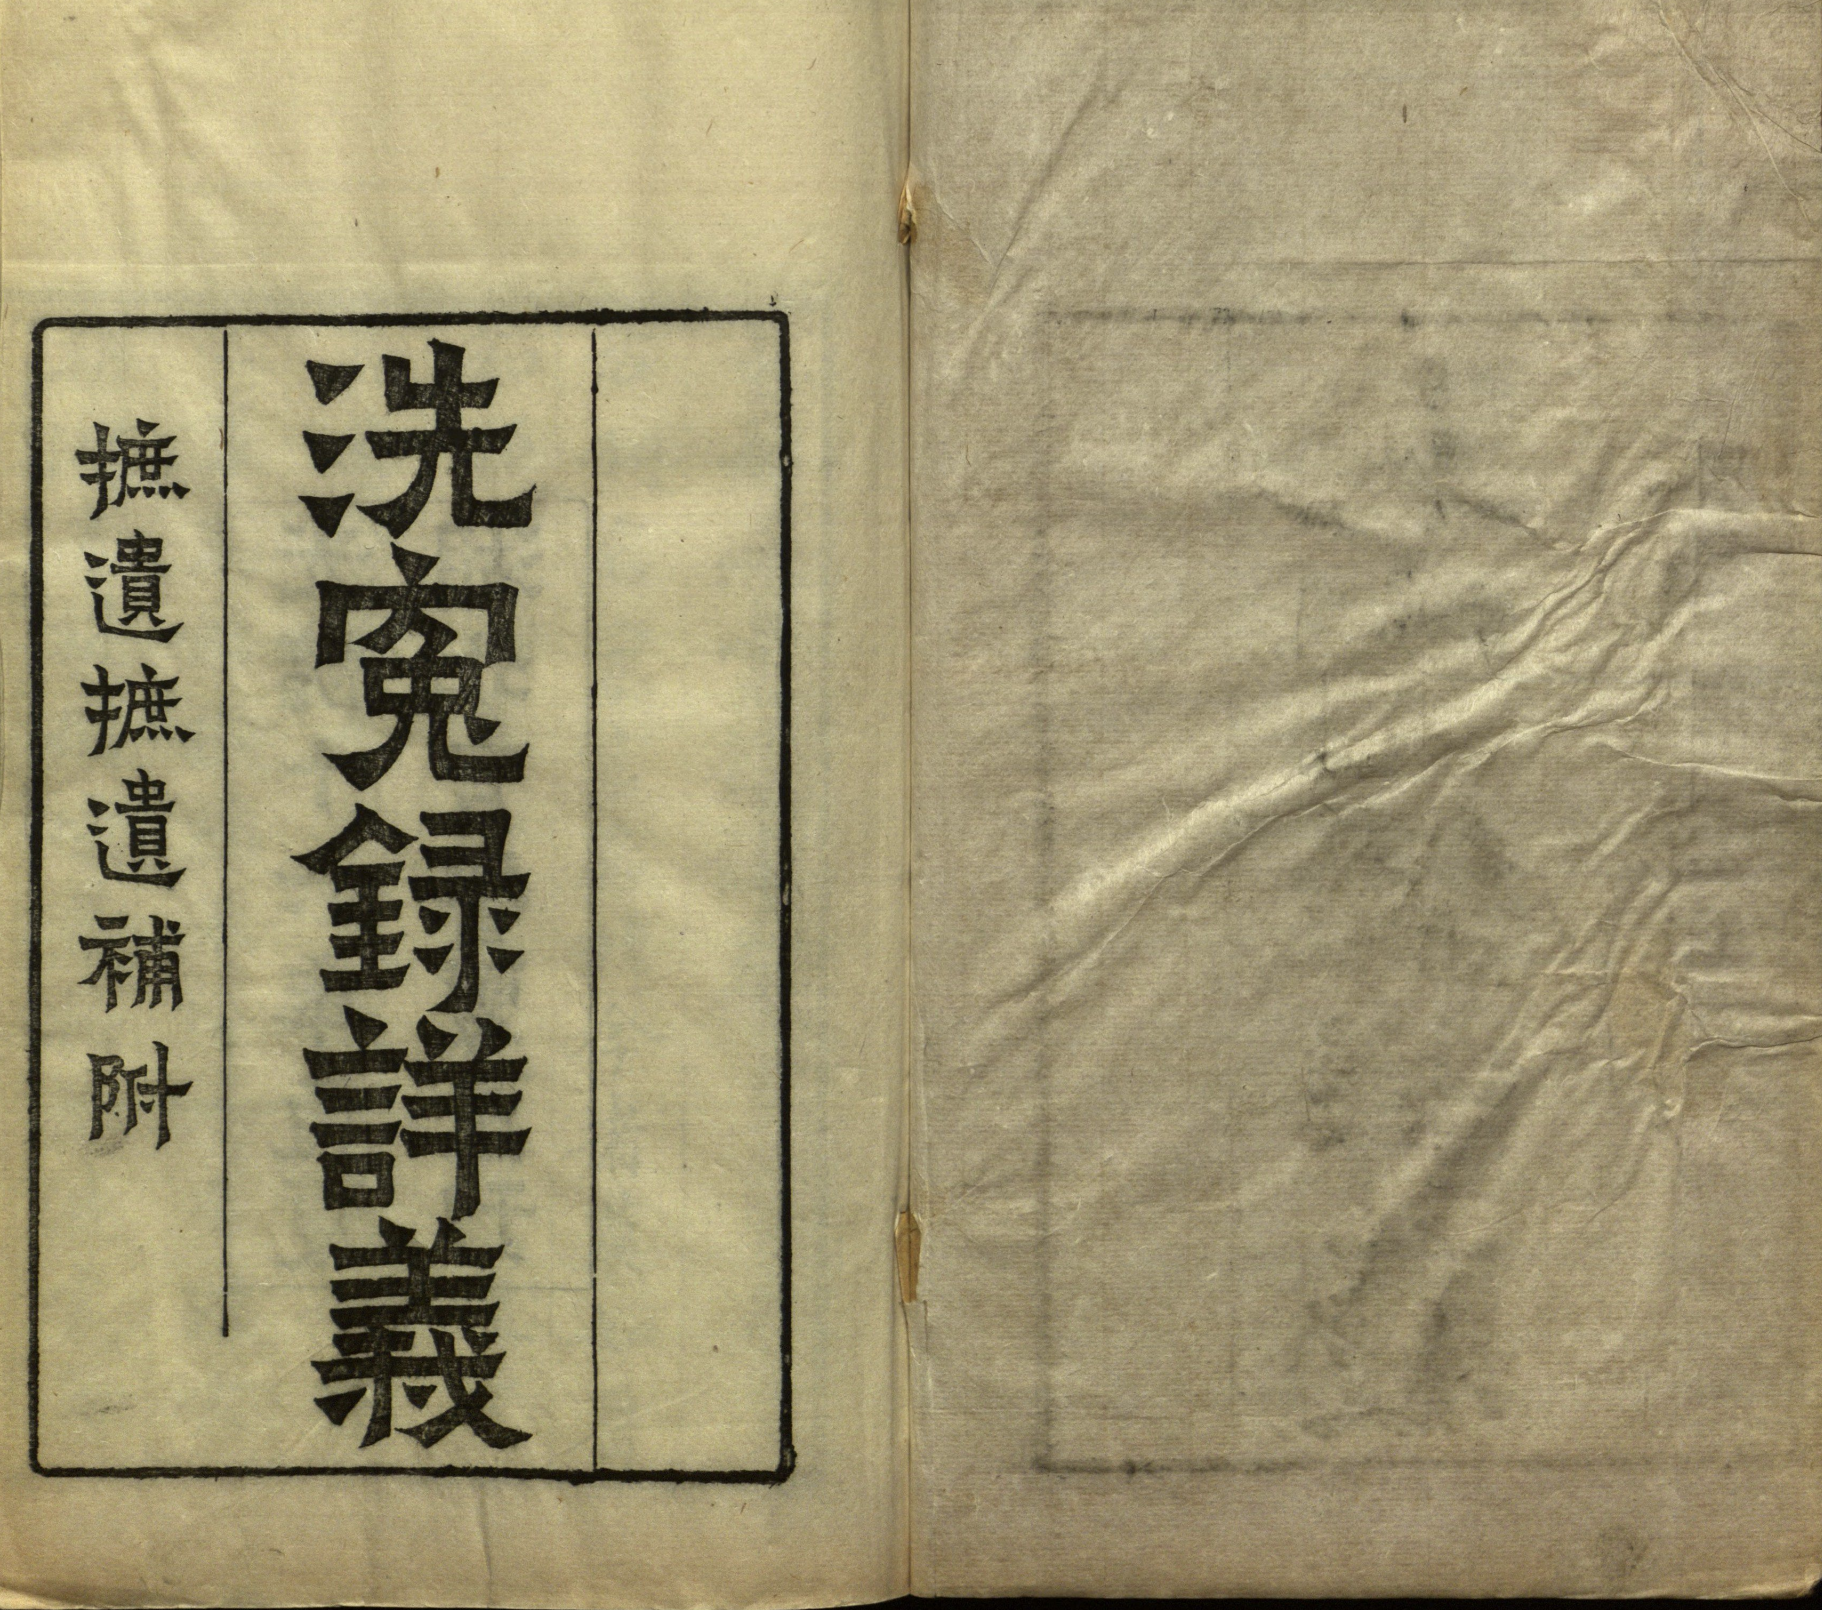 洗冤録詳義
摭遺摭遺補附